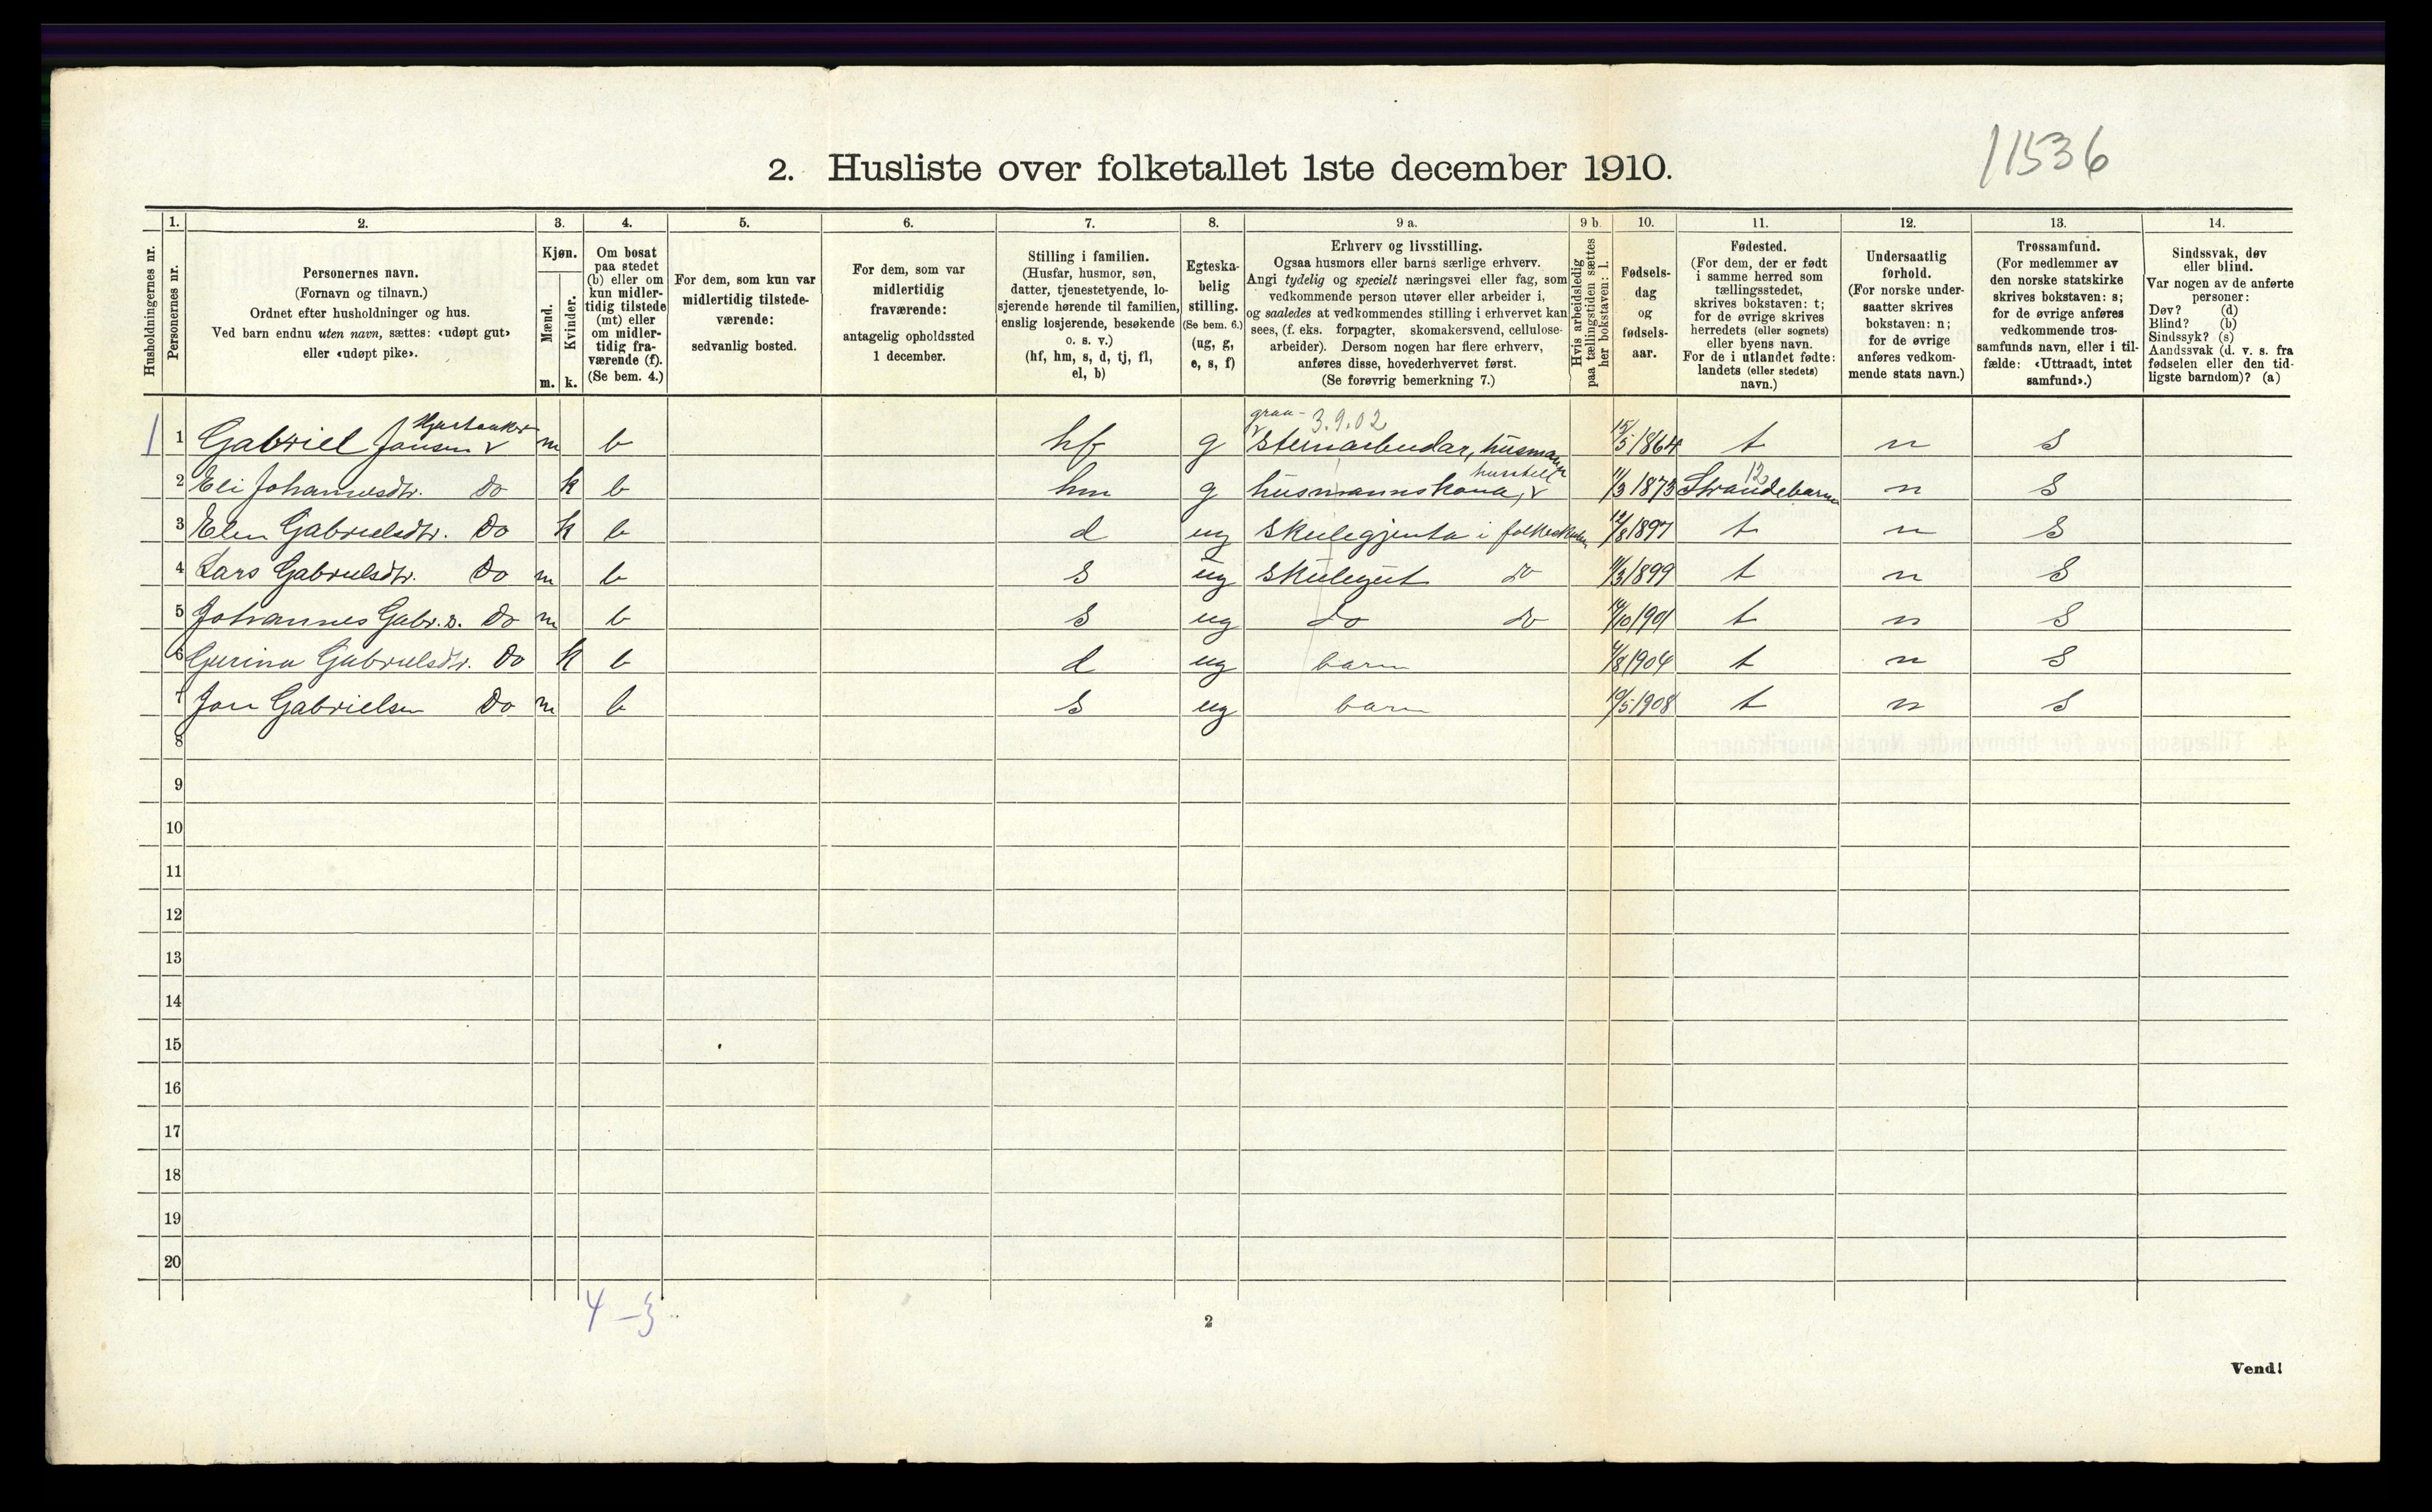 11536
2. Husliste over folketallet 1ste december 1910.
Husholdningernes nr.
1.
Personernes nr.
2.
Personernes navn.
(Fornavn og tilnavn.)
Ordnet efter husholdninger og hus.
Ved barn endnu uten navn, sættes: «udøpt gut»
eller «udøpt pike».
3.
Kjøn.
Mænd.
Kvinder.
m. k.
4.
Om bosat
paa stedet
(b) eller om
kun midler-
tidig tilstede
(mt) eller
om midler-
tidig fra-
værende (f).
(Se bem. 4.)
5.
For dem, som kun var
midlertidig tilstede-
værende:
sedvanlig bosted.
6.
For dem, som var
midlertidig
fraværende:
antagelig opholdssted
1 december.
7.
Stilling i familien.
(Husfar, husmor, søn,
datter, tjenestetyende, lo-
sjerende hørende til familien,
enslig losjerende, besøkende
o. s. v.)
(hf, hm, s, d, tj, fl,
el, b)
8.
Egteska-
belig
stilling.
(Se bem. 6.)
(ug, g,
e, s, f)
9 a.
Erhverv og livsstilling.
Ogsaa husmors eller barns særlige erhverv.
Angi tydelig og specielt næringsvei eller fag, som
vedkommende person utøver eller arbeider i,
og saaledes at vedkommendes stilling i erhvervet kan
sees, (f. eks. forpagter, skomakersvend, cellulose-
arbeider). Dersom nogen har flere erhverv,
anføres disse, hovederhvervet først.
(Se forøvrig bemerkning 7.)
9 b.
Hvis arbeidsledig
paa tællingstiden sættes
her bokstaven: l.
10.
Fødsels-
dag
og
fødsels-
aar.
11.
Fødested.
(For dem, der er født
i samme herred som
tællingsstedet,
skrives bokstaven: t;
for de øvrige skrives
herredets (eller sognets)
eller byens navn.
For de i utlandet fødte:
landets (eller stedets)
navn.)
12.
Undersaatlig
forhold.
(For norske under-
saatter skrives
bokstaven: n;
for de øvrige
anføres vedkom-
mende stats navn.)
13.
Trossamfund.
(For medlemmer av
den norske statskirke
skrives bokstaven: s;
for de øvrige anføres
vedkommende tros-
samfunds navn, eller i til-
fælde: «Uttraadt, intet
samfund».)
14.
Sindssvak, døv
eller blind.
Var nogen av de anførte
personer:
Døv? (d)
Blind? (b)
Sindssyk? (s)
Aandssvak (d. v. s. fra
fødselen eller den tid-
ligste barndom)? (a)
graa- 3.9.02
1 1 Gabriel Jansen m b hf g steinarbeidar, husmann 15/5 1864 t n s
husstell 12
2 Eli Johannesdtr. Do k b hm g husmannskona, 11/3 1873 Strandebarm n s
3 Elen Gabrielsdtr. Do k b d ug Skulegjenta i folkeskulen 12/8 1897 t n s
4 Lars Gabrielsdtr. Do m b s ug skulegut do 11/3 1899 t n s
5 Johannes Gabr. s. Do m b s ug do do 14/10 1901 t n s
6 Gurina Gabrielsdtr. Do k b d ug barn 4/8 1904 t n s
7 Jon Gabrielsen Do m b s ug barn 19/5 1908 t n s
8
9
10
11
12
13
14
15
16
17
18
19
20
4 – 3
2
Vend!